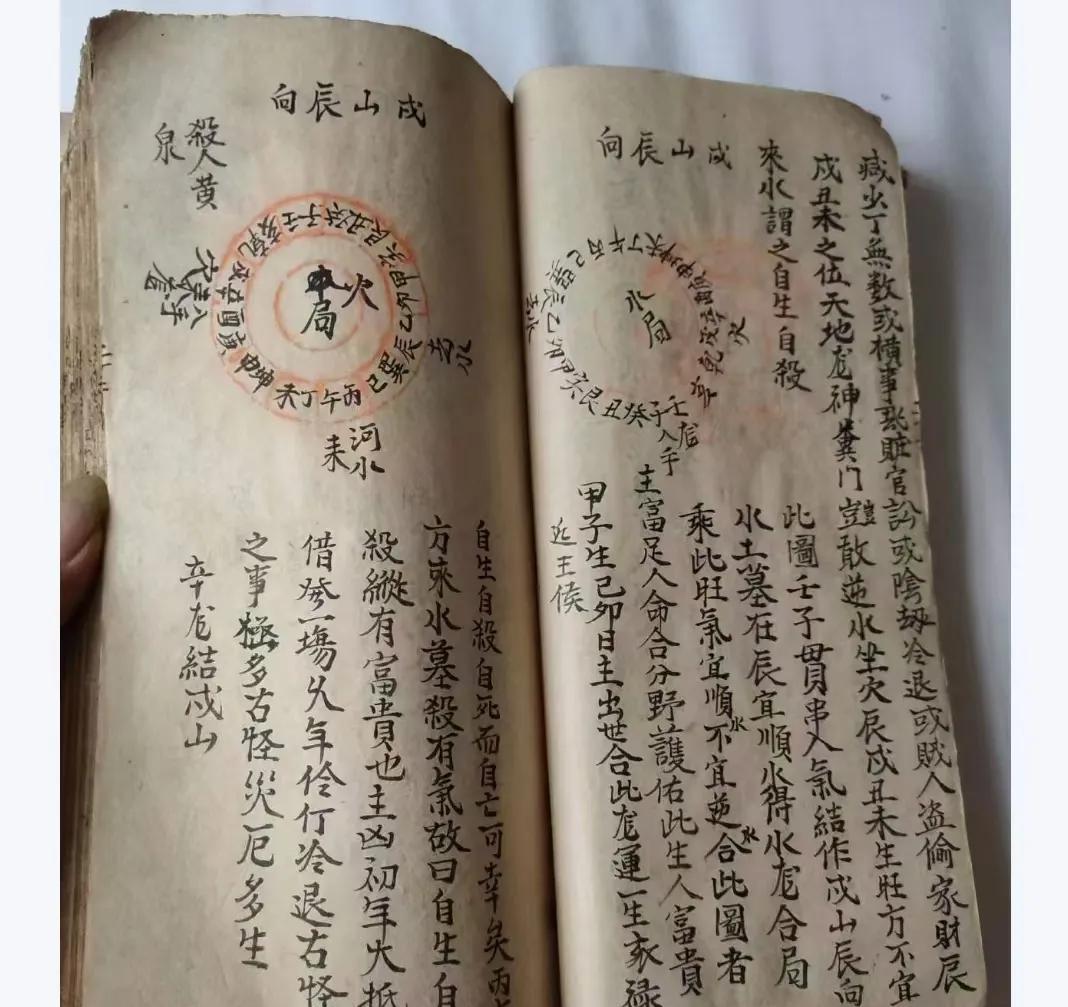 減少丁無數或橫事訛賍官訟或陰刼冷退或賊人盜偷家財辰
戌丑未之位天地龙神葬门豈敢逆水坐穴辰戌丑未生旺方不宜
來水謂之自生自殺
戌山辰向
水局
壬龙入手
去水
此圖壬子貫串入氣結作戌山辰向
水土墓在辰宜順水得水龙合局
乘此旺氣宜順水不宜逆水合此圖者
主富足人命合分野護佑此生人富貴
甲子生己卯日主出世合此龙運一生衣祿
近王侯
戌山辰向
殺人黄
泉
火局
壬子癸丑艮寅甲卯乙辰巽巳丙午丁未坤申庚酉辛戌乾亥
去水
河水
来
自生自殺自死而自亡可幸矣丙
方來水墓殺有氣故曰自生自
殺縱有富貴也主凶初年大抵
借發一塲久年伶仃冷退古怪
之事極多古怪災厄多生
辛龙結戌山